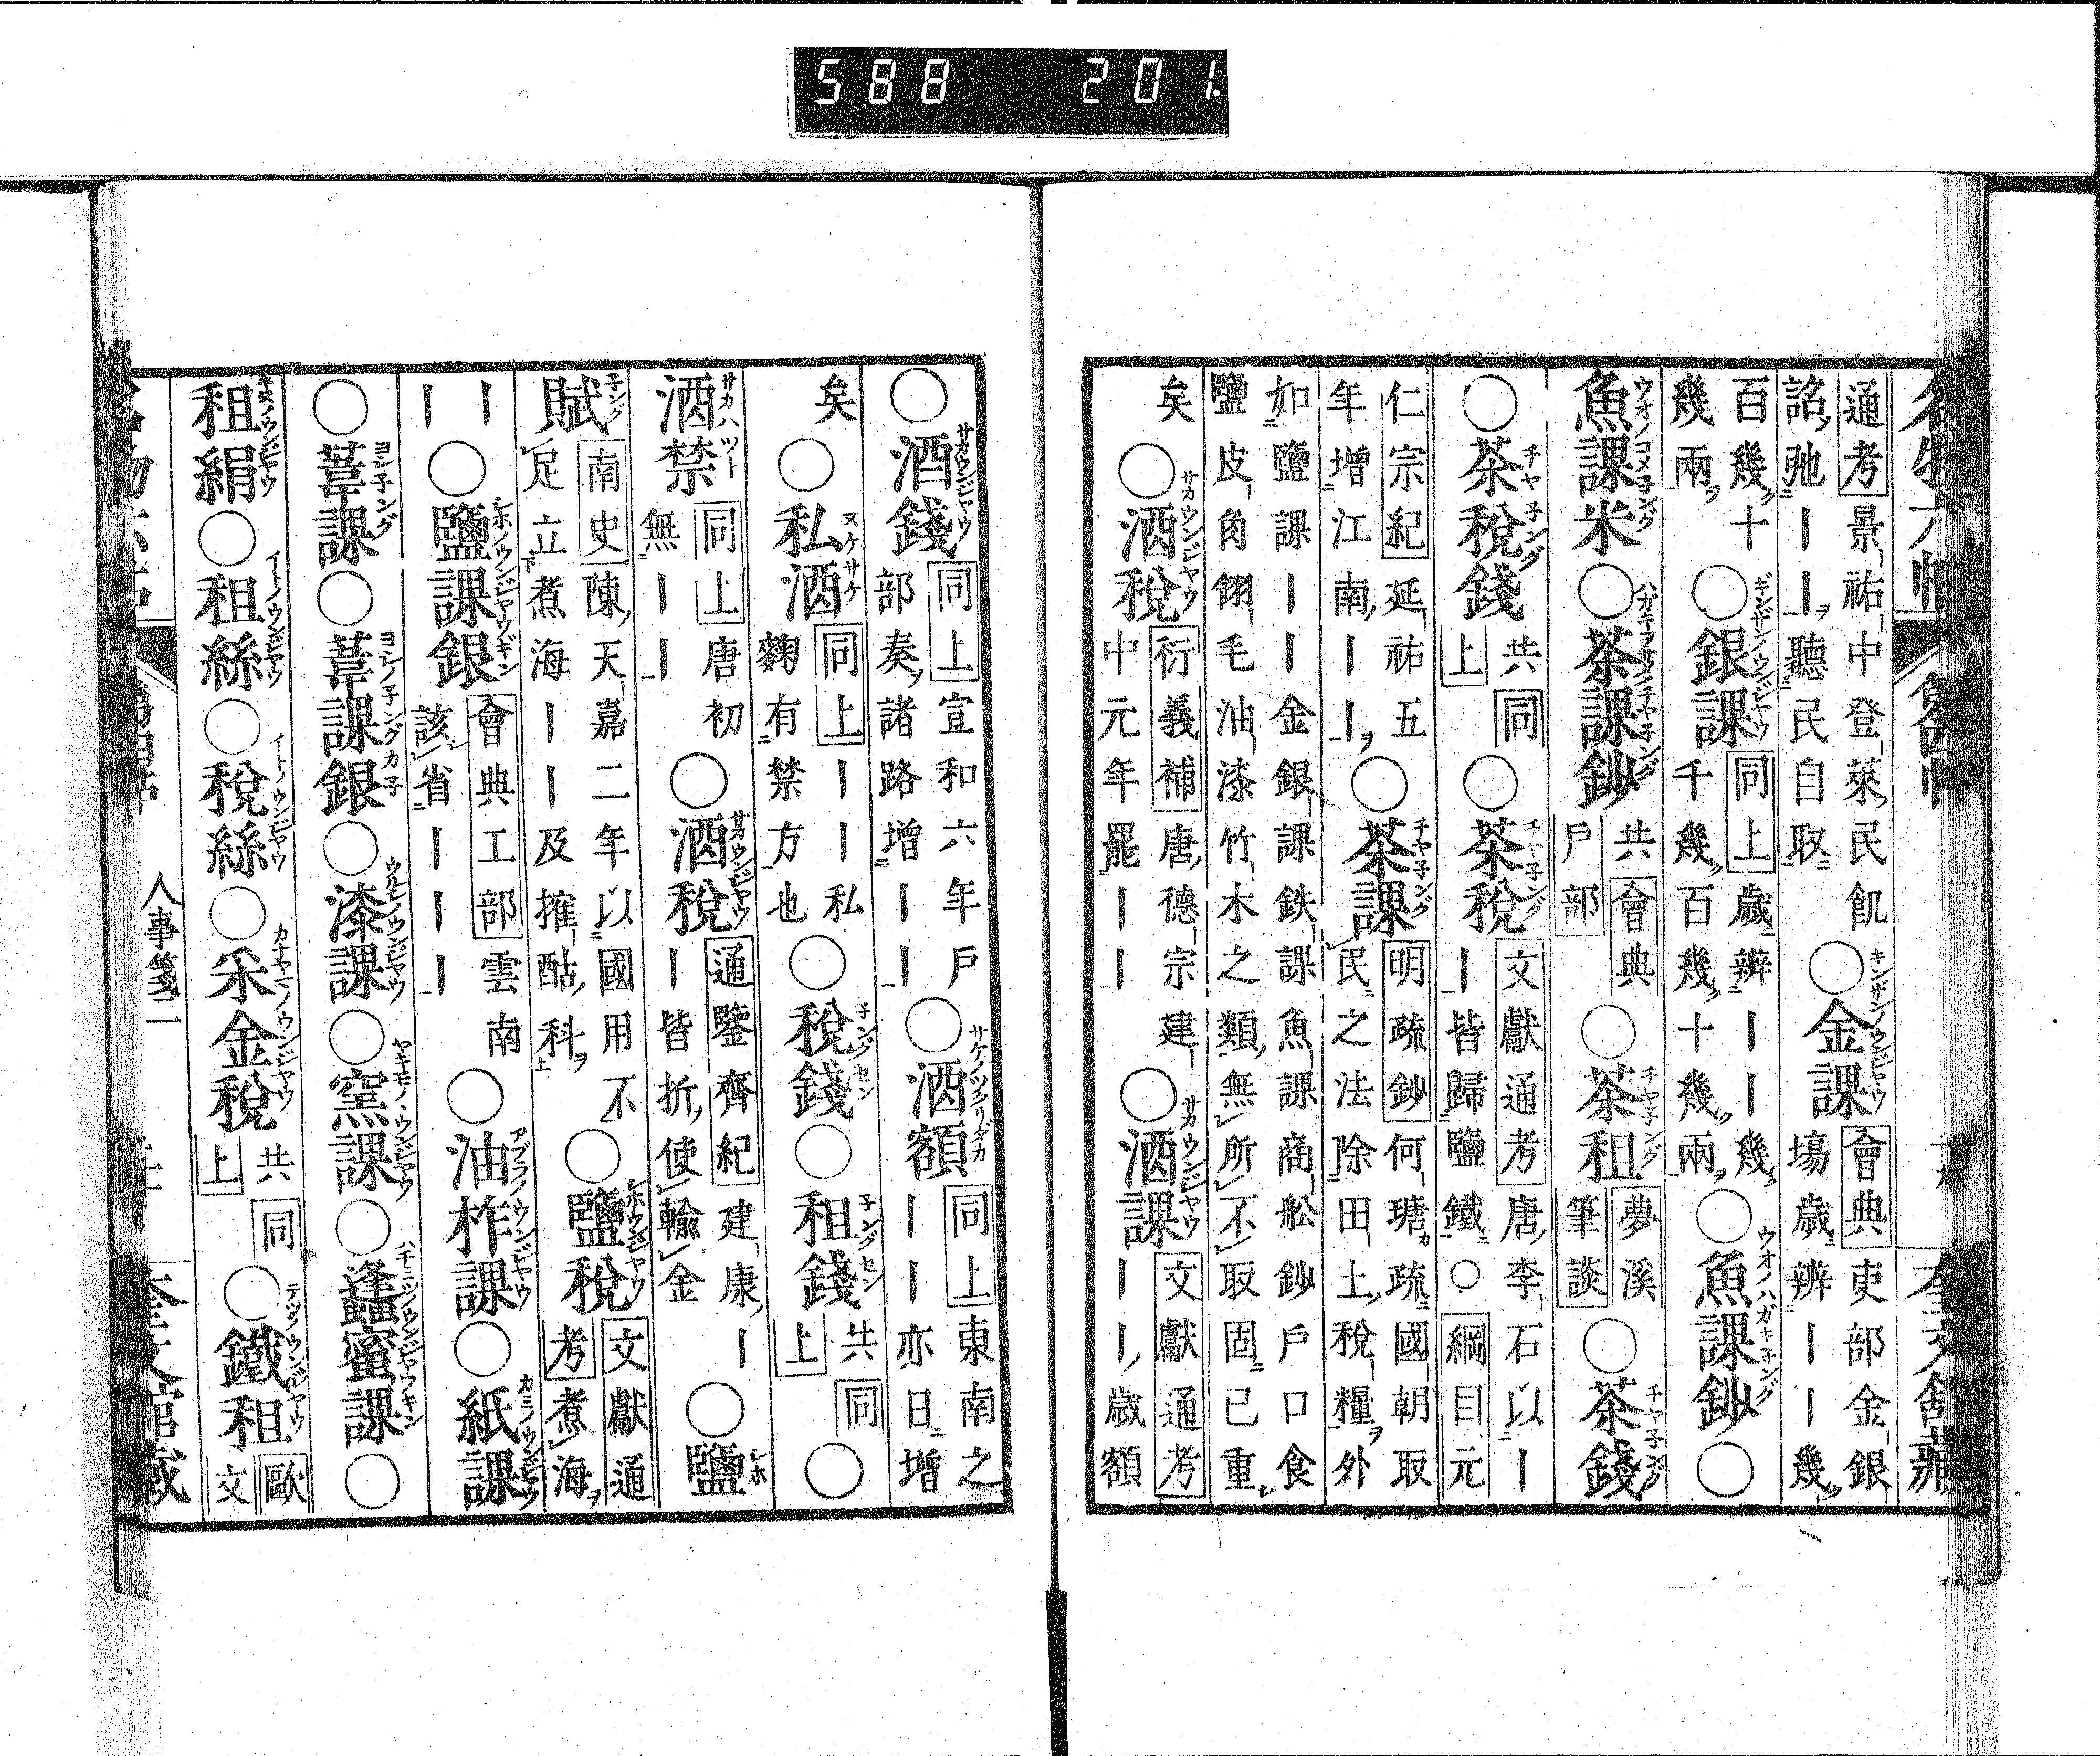 588 201.
通考景祐中登萊民飢
詔弛ーー聽民自取
○金課 會典吏部金銀
塲歳辨ーー幾
百幾十
幾兩
○銀課 同上歳辨ーー幾
千幾百幾十幾兩
○魚課鈔○
魚課米○茶課鈔 共會典
戶部
○茶租 夢溪
筆談
○茶錢
○茶稅錢 共同
上
○茶稅 文獻通考唐李石以ー
ー皆歸鹽鐵○綱目元
仁宗紀延祐五
年增江南ーー
○茶課 明疏鈔何瑭疏國朝取
民之法除田土稅糧外
如鹽課ーー金銀課鉄課魚課商舩鈔戶口食
鹽皮角翎毛油漆竹木之類無所不取固已重
矣
○酒稅 衍義補唐德宗建
中元年罷ーー
○酒課 文獻通考
ーーー歲額
○酒錢 同上宣和六年戶
部奏諸路增ーー
○酒額 同上東南之
ーー亦日增
矣
○私酒 同上ーー私
麴有禁方也
○稅錢○租錢 共同
上
○
酒禁 同上唐初
無ーー
○酒稅 通鑒齊紀建康ー
ー皆折使輸金
○鹽
賦 南史陳天嘉二年以國用不
足立煮海ーー及搉酤科
○鹽稅 文獻通
考煮海
ー
ー
○鹽課銀 會典工部雲南
該省ーーー
○油柞課○紙課
○葦課○葦課銀○漆課○窯課○蠭蜜課○
租絹○租絲○稅絲○采金稅 共同
上
○鐵租 歐
文
人事箋二